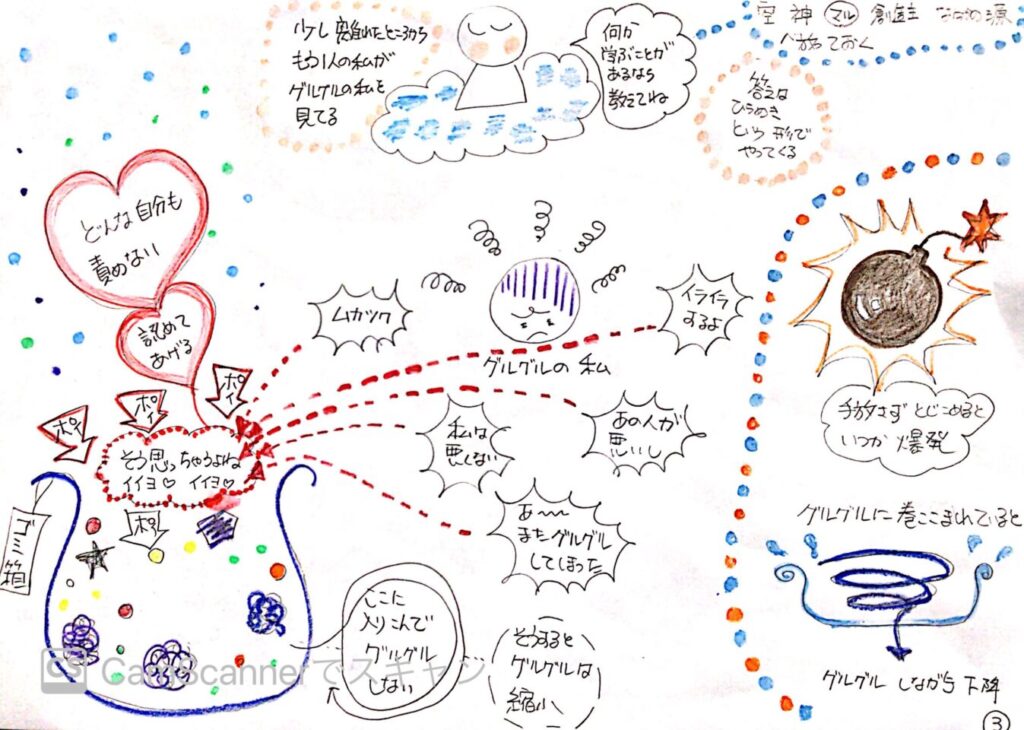 少し離れたところから
もう1人の私が
グルグルの私を
見てる
何か
学ぶことが
あるなら
教えてね
空 神 マル 創造主 の源
へ放っておく
答えは
ひらめき
という形で
やってくる
どんな自分も
責めない
認めて
あげる
ポイ
ポイ
ポイ
そう思っちゃうよね
イイヨ♡ イイヨ♡
ポイ
ゴミ箱
ムカツク
イライラ
するよ
グルグルの私
私は
悪くない
あの人が
悪いし
あ〜〜
またグルグル
してしまった
ここに
入りこんで
グルグル
しない
そうすると
グルグルは
縮小
手放さず とじこめると
いつか 爆発
グルグルに巻きこまれていると
グルグル しながら 下降
③
CS CamScannerでスキャン